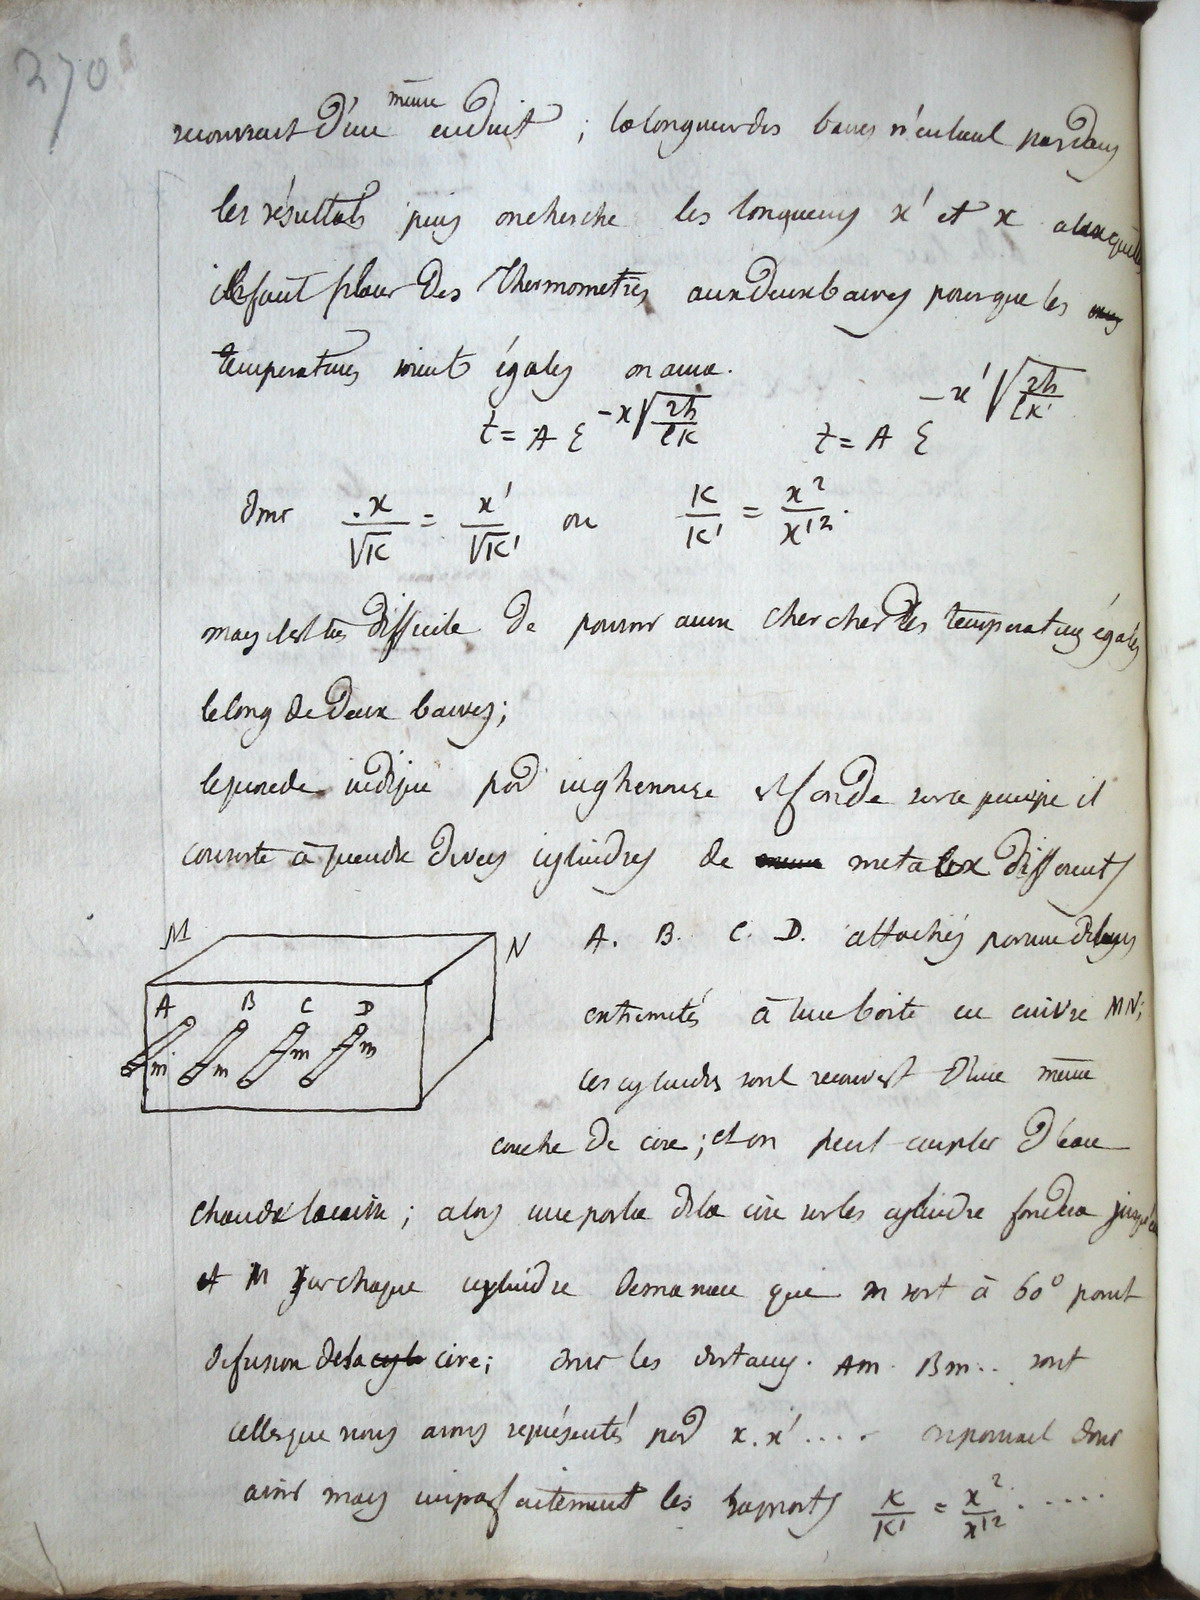 370
même
recouvrait d'un enduit ; la longueur des barres n'entrant pas dans
les résultats puis on cherche les longueurs x' et x auxquelles
il faut placer des thermometres aux deux barres pour que les
temperatures soient égales on aura.
t = A ε^{-x√(2h/lK)} t = A ε^{-x'√(2h/lK')}
donc x/√K = x'/√K' ou K/K' = x²/x'²
mais il est très difficile de pouvoir aller chercher des temperatures égales
le long de deux barres;
le procede indique par inghenouse est fondé sur ce principe il
consiste à prendre divers cylindres de metaux differents
M N A. B. C. D. attachés par une de leurs
A B C D
extremités à une boite en cuivre MN;
m m m m
ces cylindres sont recouvert d'une même
couche de cire ; et on peut emplir d'eau
chaude la caisse ; alors une partie de la cire sur les cylindre fondra jusqu'en
m sur chaque cylindre de maniere que m soit à 60° point
de fusion de la cire; donc les distances Am. Bm.. sont
celles que nous avons représentés par x. x' .... on pourrait donc
avoir mais imparfaitement les rapports K/K' = x²/x'² .....